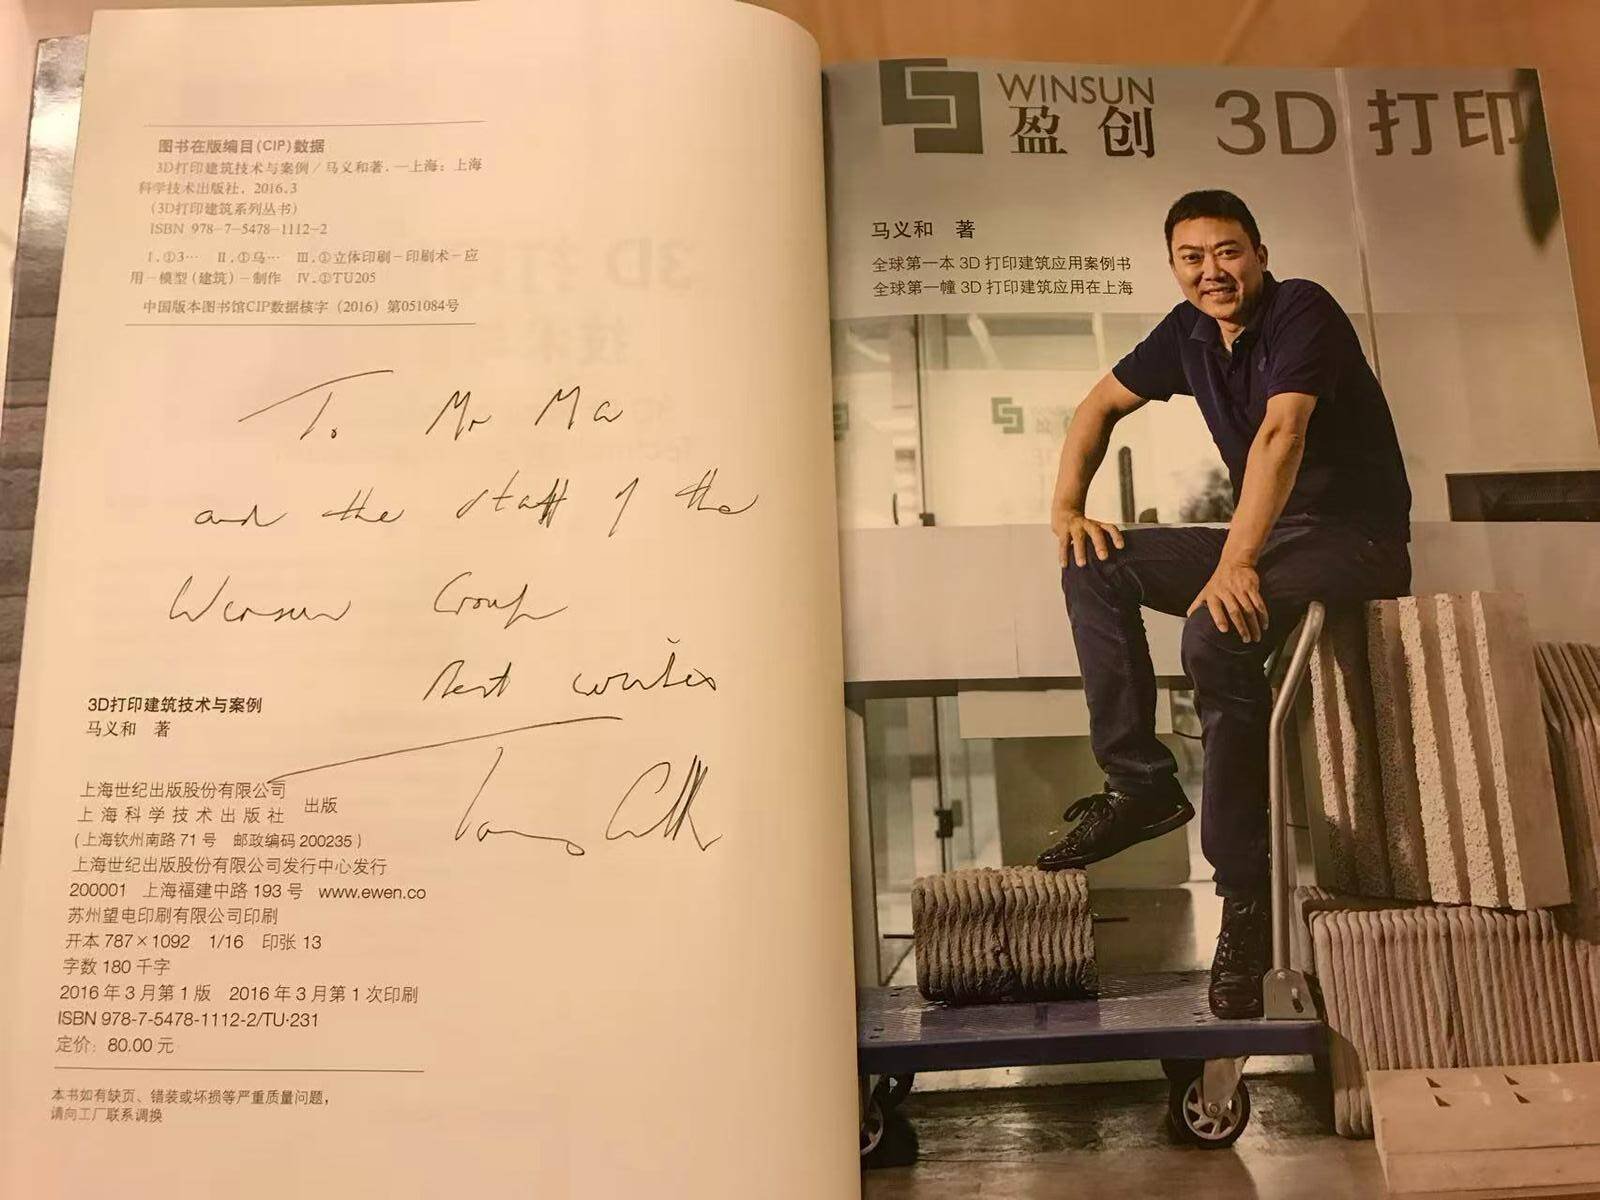 图书在版编目(CIP)数据
3D打印建筑技术与案例/马义和著.—上海:上海
科学技术出版社,2016.3
(3D打印建筑系列丛书)
ISBN 978-7-5478-1112-2
Ⅰ.①3… Ⅱ.①马… Ⅲ.①立体印刷-印刷术-应
用-模型(建筑)-制作 Ⅳ.①TU205
中国版本图书馆CIP数据核字(2016)第051084号
To Mr Ma
and the staff of the
Winsun Group
Best wishes
Tony
3D打印建筑技术与案例
马义和 著
上海世纪出版股份有限公司
上海科学技术出版社 出版
(上海钦州南路71号 邮政编码200235)
上海世纪出版股份有限公司发行中心发行
200001 上海福建中路193号 www.ewen.co
苏州望电印刷有限公司印刷
开本 787×1092 1/16 印张 13
字数 180 千字
2016年3月第1版 2016年3月第1次印刷
ISBN 978-7-5478-1112-2/TU·231
定价: 80.00 元
本书如有缺页、错装或坏损等严重质量问题,
请向工厂联系调换
WINSUN
盈创 3D 打印
马义和 著
全球第一本 3D 打印建筑应用案例书
全球第一幢 3D 打印建筑应用在上海